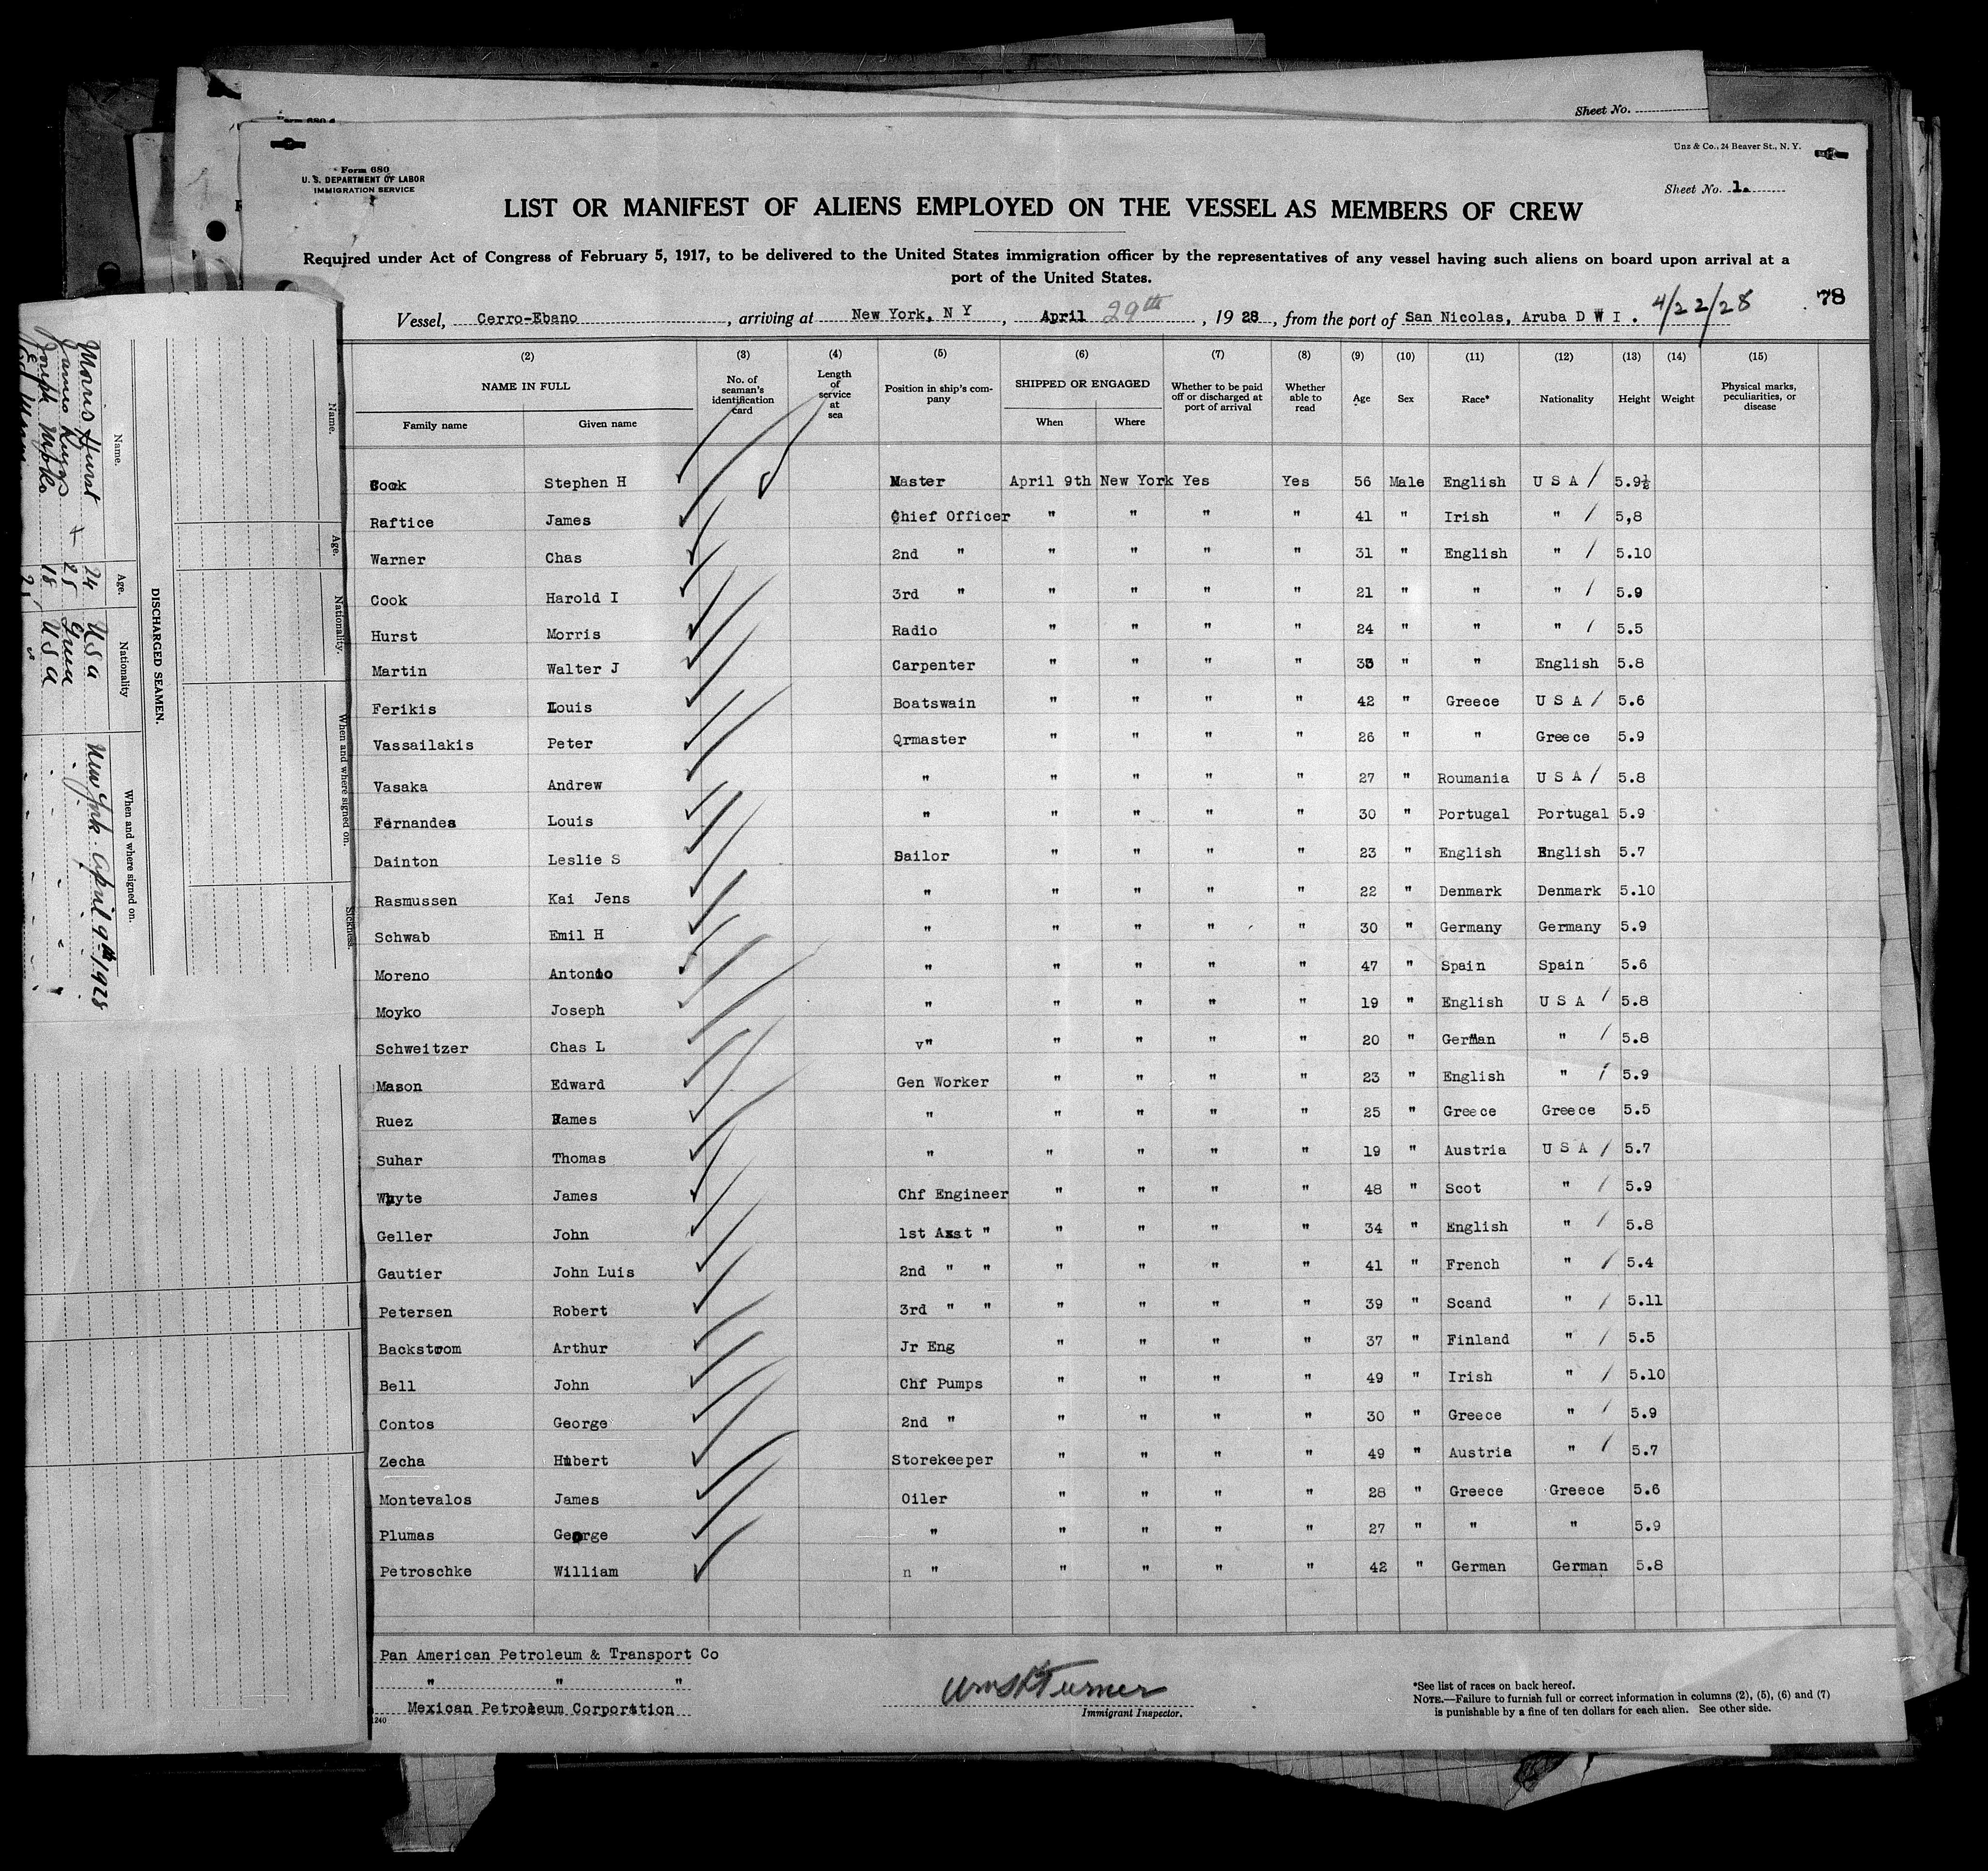 Sheet No.
Form 680
Unz & Co., 24 Beaver St., N. Y.
Form 680
U. S. DEPARTMENT OF LABOR
IMMIGRATION SERVICE
Sheet No. 1.
LIST OR MANIFEST OF ALIENS EMPLOYED ON THE VESSEL AS MEMBERS OF CREW
Required under Act of Congress of February 5, 1917, to be delivered to the United States immigration officer by the representatives of any vessel having such aliens on board upon arrival at a
port of the United States.
78
Vessel, Cerro-Ebano, arriving at New York, N Y, April 29th, 1928, from the port of San Nicolas, Aruba D W I. 4/22/28
(2) (3) (4) (5) (6) (7) (8) (9) (10) (11) (12) (13) (14) (15)
NAME IN FULL
Family name Given name
No. of seaman's identification card
Length of service at sea
Position in ship's company
SHIPPED OR ENGAGED
When Where
Whether to be paid off or discharged at port of arrival
Whether able to read
Age Sex Race* Nationality Height Weight
Physical marks, peculiarities, or disease
Cook Stephen H Master April 9th New York Yes Yes 56 Male English U S A / 5.9½
Raftice James Chief Officer " " " " 41 " Irish " / 5,8
Warner Chas 2nd " " " " " 31 " English " / 5.10
Cook Harold I 3rd " " " " " 21 " " " / 5.9
Hurst Morris Radio " " " " 24 " " " / 5.5
Martin Walter J Carpenter " " " " " " English 5.8
Ferikis Louis Boatswain " " " " 42 " Greece U S A / 5.6
Vassailakis Peter Qrmaster " " " " 26 " " Greece 5.9
Vasaka Andrew " " " " " 27 " Roumania U S A / 5.8
Fernandes Louis " " " " " 30 " Portugal Portugal 5.9
Dainton Leslie S Sailor " " " " 23 " English English 5.7
Rasmussen Kai Jens " " " " " 22 " Denmark Denmark 5.10
Schwab Emil H " " " " " 30 " Germany Germany 5.9
Moreno Antonio " " " " " 47 " Spain Spain 5.6
Moyko Joseph " " " " " 19 " English U S A / 5.8
Schweitzer Chas L v" " " " " 20 " German " / 5.8
Mason Edward Gen Worker " " " " 23 " English " / 5.9
Ruez James " " " " " 25 " Greece Greece 5.5
Suhar Thomas " " " " " 19 " Austria U S A / 5.7
Whyte James Chf Engineer " " " " 48 " Scot " / 5.9
Geller John 1st Asst " " " " " 34 " English " / 5.8
Gautier John Luis 2nd " " " " " " 41 " French " / 5.4
Petersen Robert 3rd " " " " " " 39 " Scand " / 5.11
Backstrom Arthur Jr Eng " " " " 37 " Finland " / 5.5
Bell John Chf Pumps " " " " 49 " Irish " / 5.10
Contos George 2nd " " " " " 30 " Greece " / 5.9
Zecha Hubert Storekeeper " " " " 49 " Austria " / 5.7
Montevalos James Oiler " " " " 28 " Greece Greece 5.6
Plumas George " " " " " 27 " " " 5.9
Petroschke William n " " " " " 42 " German German 5.8
Pan American Petroleum & Transport Co
" " "
Mexican Petroleum Corporation
1240
Immigrant Inspector.
*See list of races on back hereof.
NOTE.—Failure to furnish full or correct information in columns (2), (5), (6) and (7)
is punishable by a fine of ten dollars for each alien. See other side.
Name. Age. Nationality. When and where signed on. Sickness.
DISCHARGED SEAMEN.
Name. Age. Nationality When and where signed on.
Morris Hurst 24 USA New York. April 9th 1928
James + 25
Joseph 18 USA